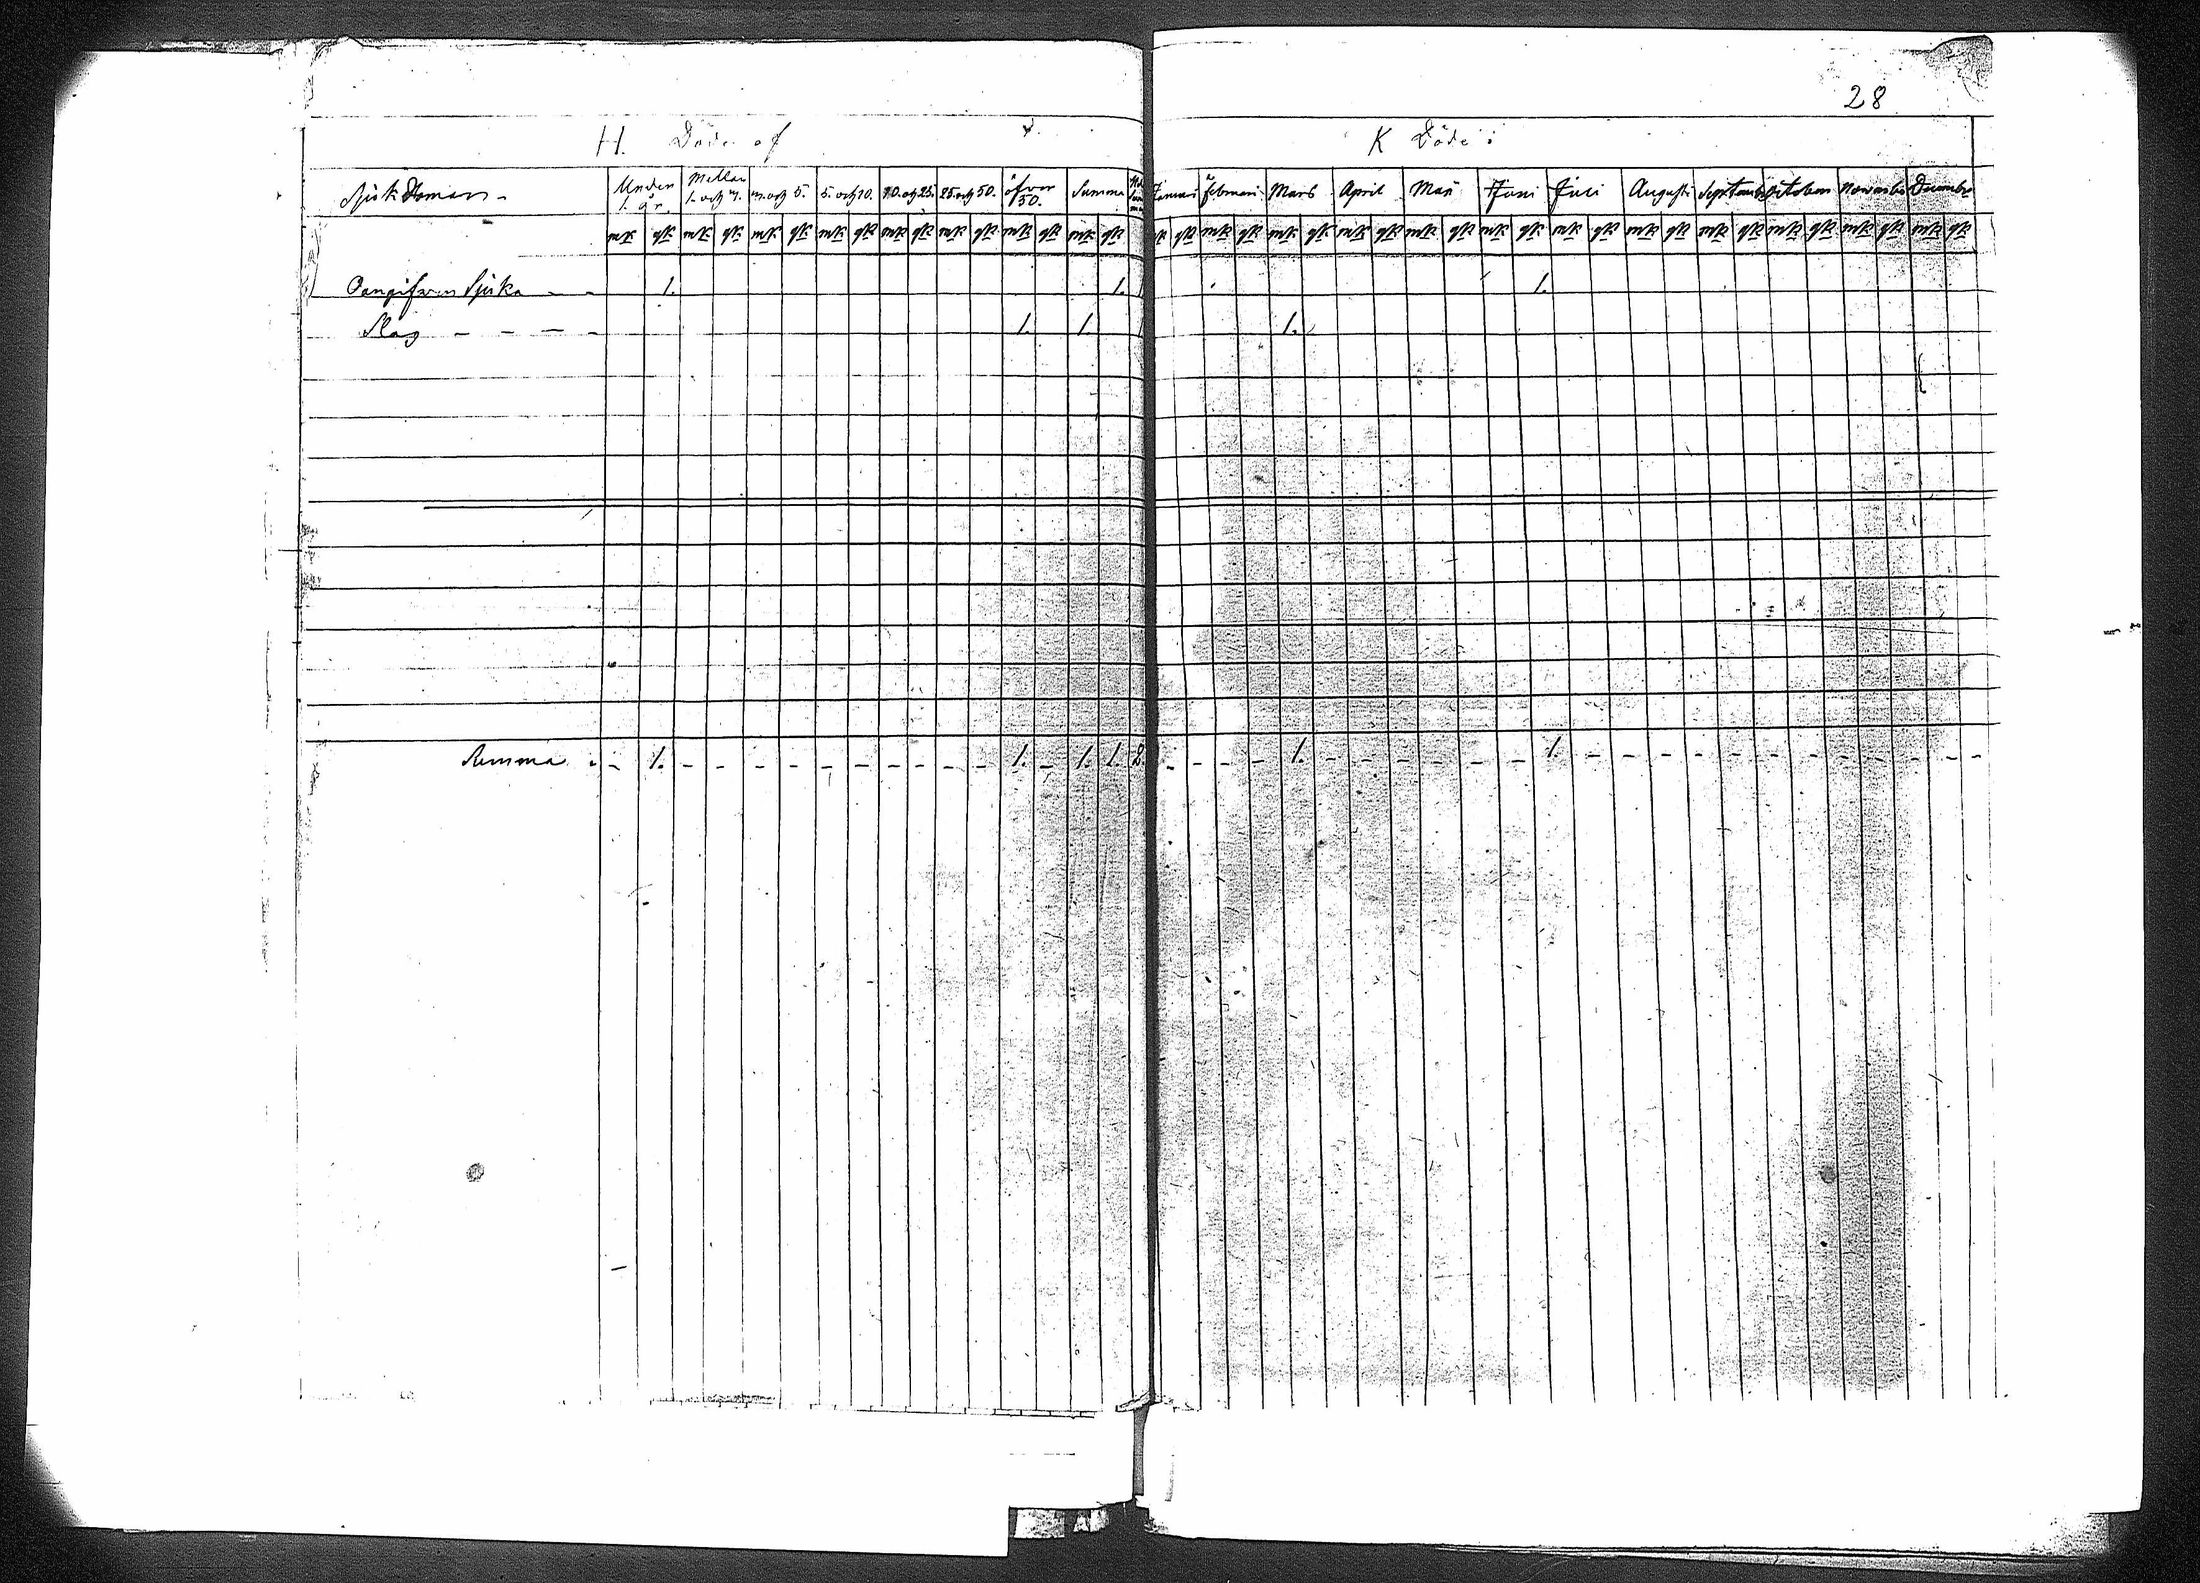 28
H. Döde af
K Döde i
Sjukdomar Under 1. år. Mellan 1. och 3. 3. och 5. 5. och 10. 10. och 25. 25. och 50. öfver 50. Summa Januari Februari Mars April Maii Juni Juli Augusti September October November December
mk qk mk qk mk qk mk qk mk qk mk qk mk qk mk qk k qk mk qk mk qk mk qk mk qk mk qk mk qk mk qk mk qk mk qk mk qk mk qk
Oangifven Sjuka - - 1. 1. 1.
Slag - - - - 1. 1. 1.
Summa 1. 1. 1. 1. 2. 1. 1.